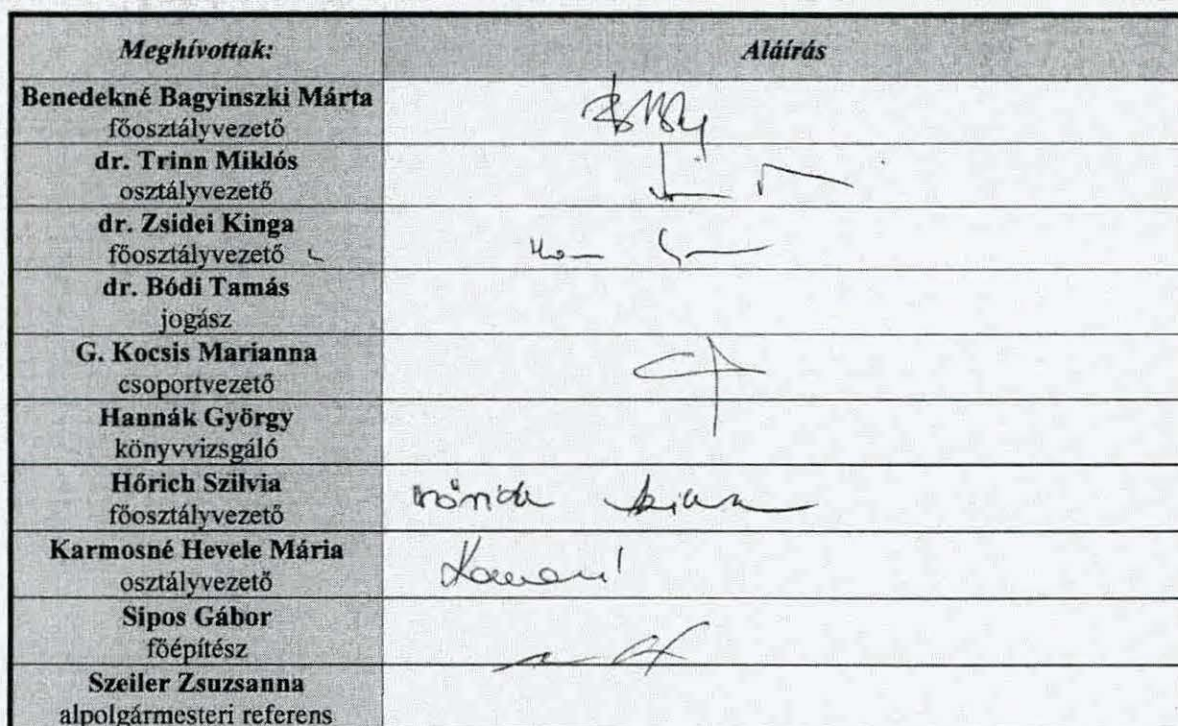 Meghívottak: Aláírás
Benedekné Bagyinszki Márta
főosztályvezető
dr. Trinn Miklós
osztályvezető
dr. Zsidei Kinga
főosztályvezető
dr. Bódi Tamás
jogász
G. Kocsis Marianna
csoportvezető
Hannák György
könyvvizsgáló
Hőrich Szilvia
főosztályvezető
Karmosné Hevele Mária
osztályvezető
Sipos Gábor
főépítész
Szeiler Zsuzsanna
alpolgármesteri referens